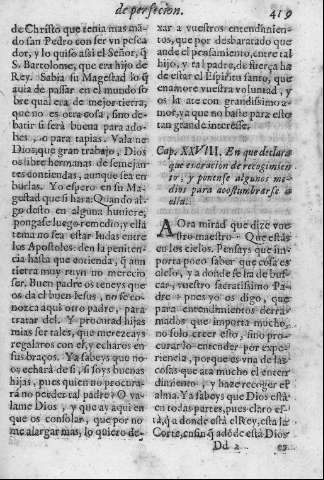 de perfecion. 419
de Christo que tenia mas mā
do san Pedro con ser vn pesca
dor, y lo quiso assi el Señor, q̄
S. Bartolome, que era hijo de
Rey. Sabia su Magestad lo q̄
auia de passar en el mundo so
bre qual era de mejor tierra,
que no es otra cosa, sino de-
batir si será buena para ado-
bes, o para tapias. Vala me
Dios, que gran trabajo, Dios
os libre hermanas de semejan
tes contiendas, aunque sea en
burlas. Yo espero en su Ma-
gestad que si hara. Quando al-
go desto en alguna huuiere,
pongase luego remedio, y ella
tema no sea estar Iudas entre
los Apostoles: den la peniten-
cia hasta que entienda, q̄ aun
tierra muy ruyn no merecio
ser. Buen padre os teneys que
os da el buen Iesus, no se co-
nozca aqui otro padre, para
tratar del. Y procurad hijas
mias ser tales, que merezcays
regalaros con el, y echaros en
sus braços. Ya sabeys que no
os echará de si, si soys buenas
hijas, pues quien no procura-
rà no perder tal padre? O va-
lame Dios, y que ay aqui en
que os consolar, que por no
me alargar mas, lo quiero de-
xar a vuestros entendimien-
tos, que por desbaratado que
ande el pensamiento, entre tal
hijo, y tal padre, de fuerça ha
de estar el Espiritu santo, que
enamore vuestra voluntad, y
os la ate con grandissimo a-
mor, ya que no baste para esto
tan grande interesse.
Cap. XXVIII. En que declara
que es oracion de recogimien
to, y ponense algunos me-
dios para acostumbrarse a
ella.
AOra mirad que dize vue
stro maestro: Que estàs
en los cielos. Pensays que im
porta poco saber que cosa es
cielo, y a donde se ha de bus-
car, vuestro sacratissimo Pa-
dre? pues yo os digo, que
para entendimientos derra-
mados que importa mucho,
no solo creer esto, sino procu-
rarlo entender por expe-
riencia, porque es vna de las
cosas que ata mucho el enten
dimiento, y haze recoger el
alma. Ya sabeys que Dios està
en todas partes, pues claro es-
tà, q̄ a donde està el Rey, esta la
Corte, en fin q̄ adōde està Dios
Dd 2 es